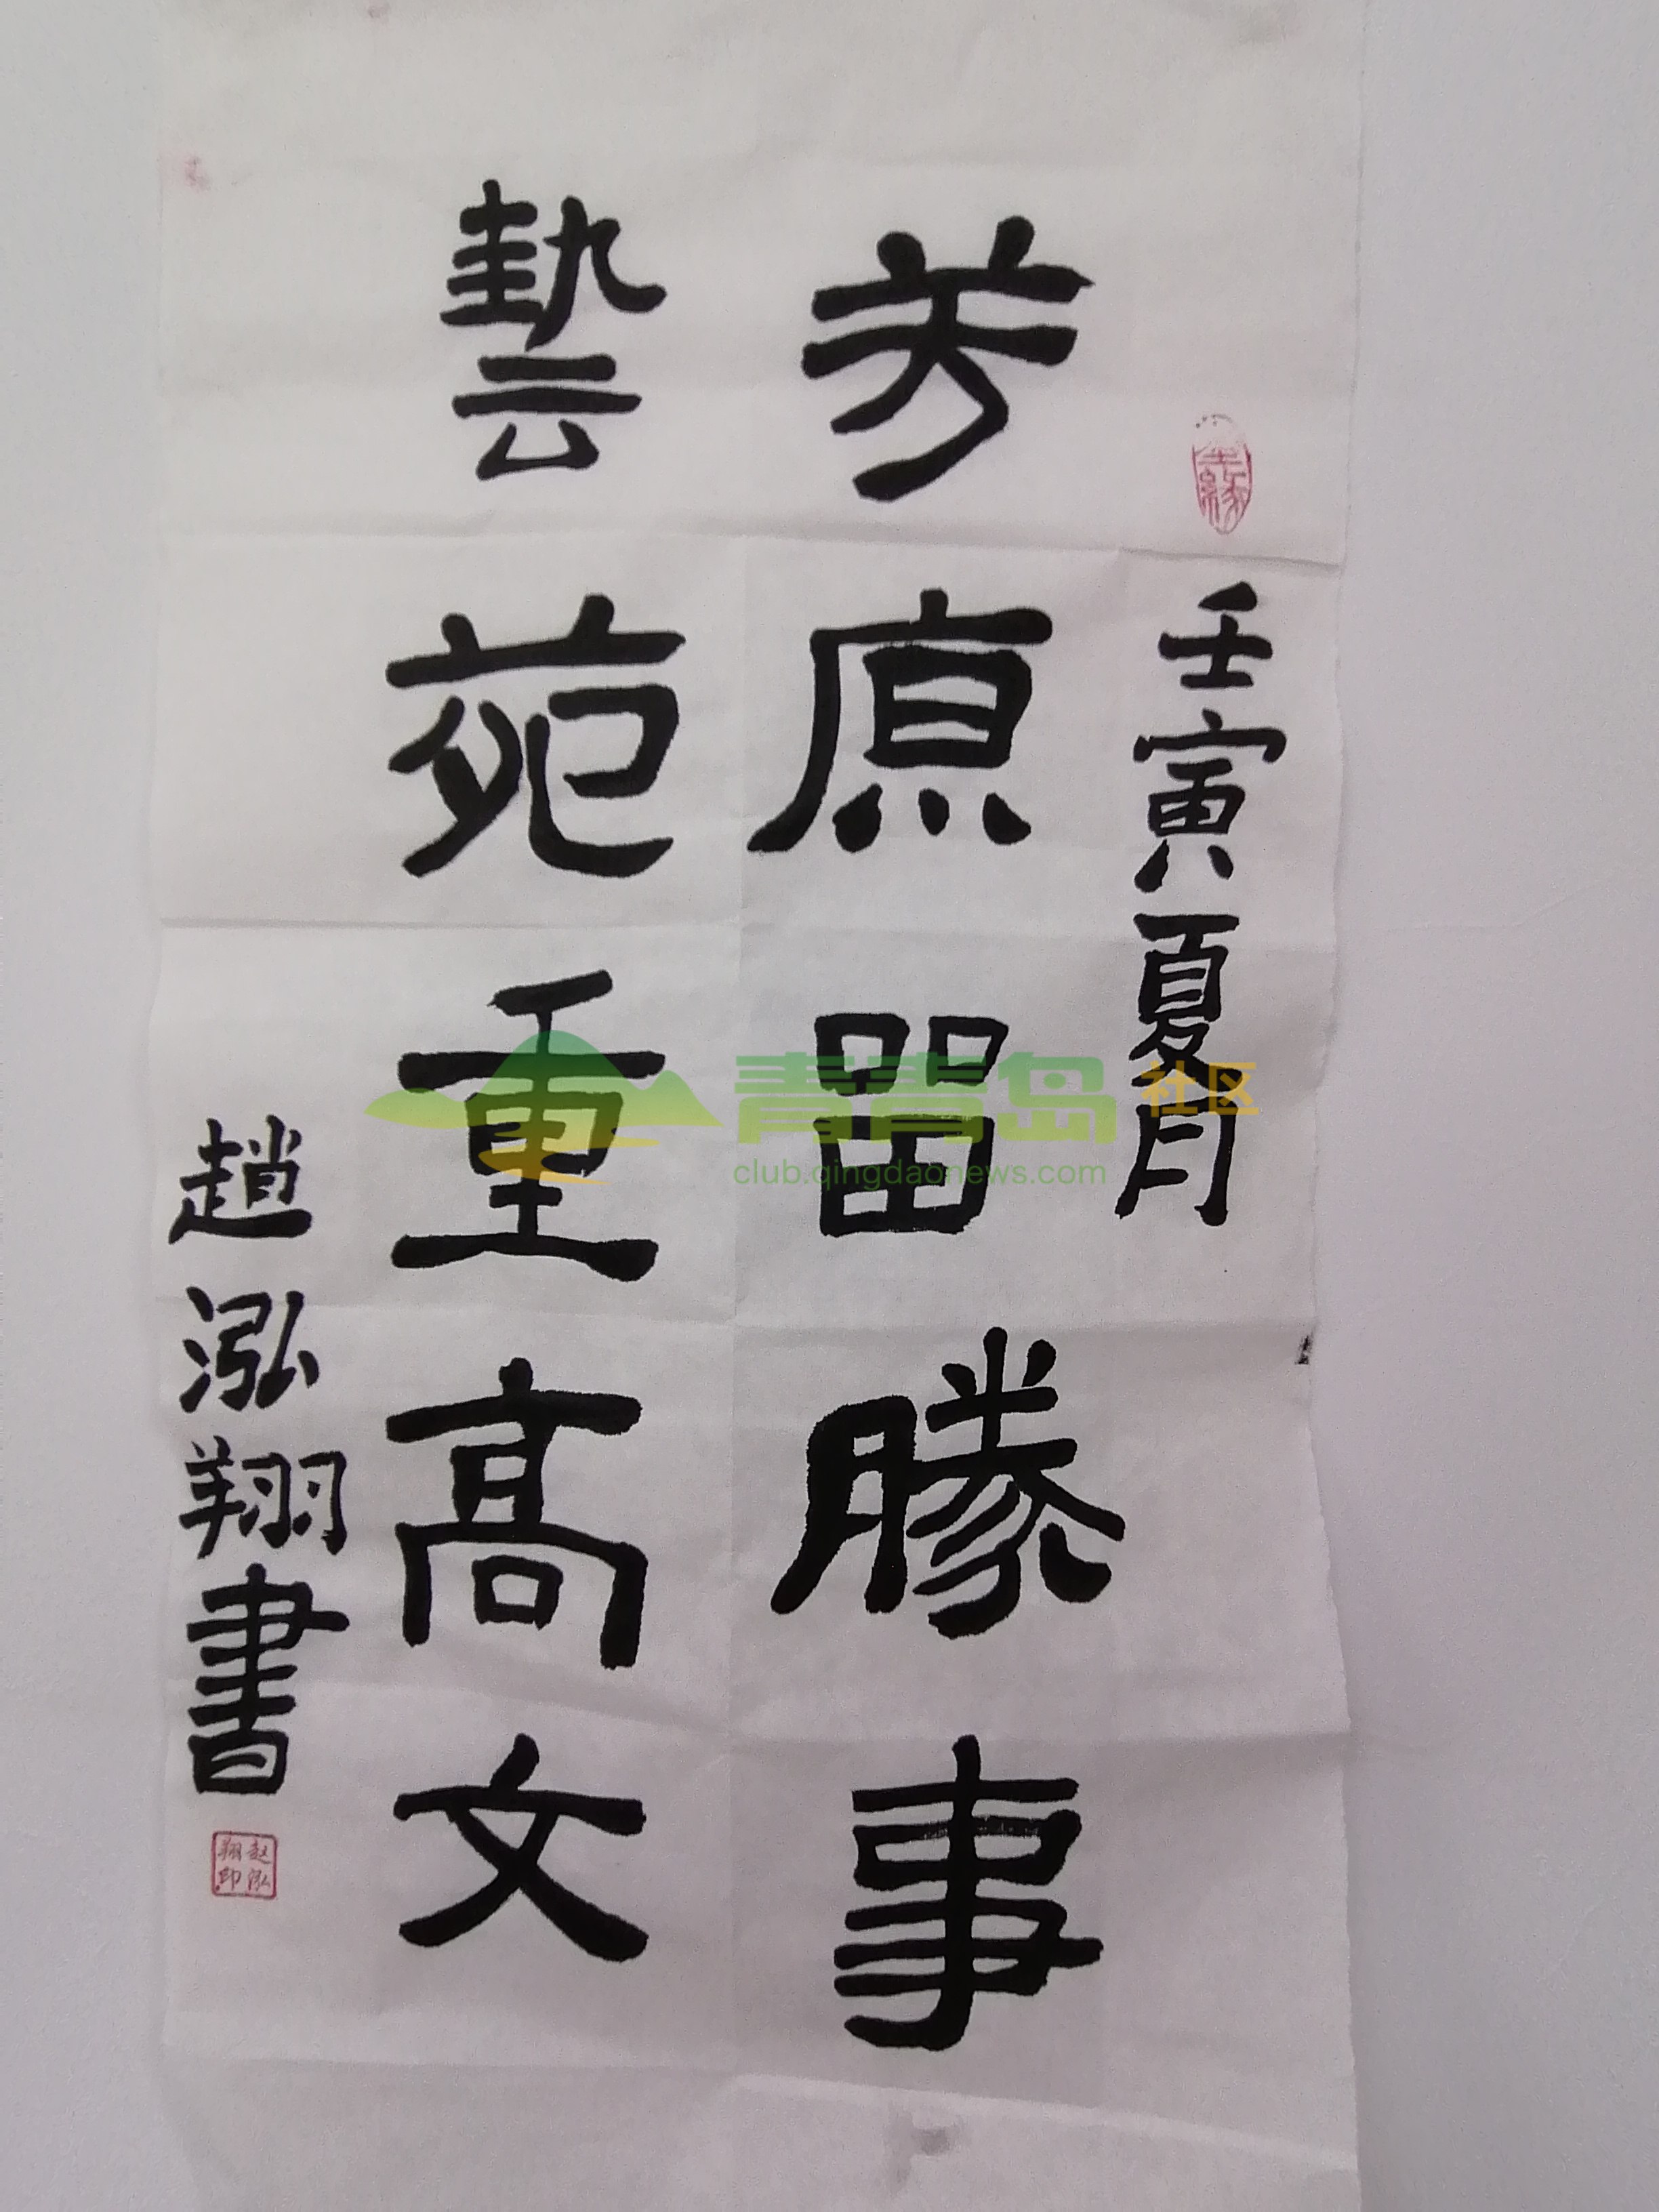 壬寅夏月
芳原留勝事
藝苑重高文
趙泓翔書
赵泓翔印
青青岛社区
club.qingdaonews.com